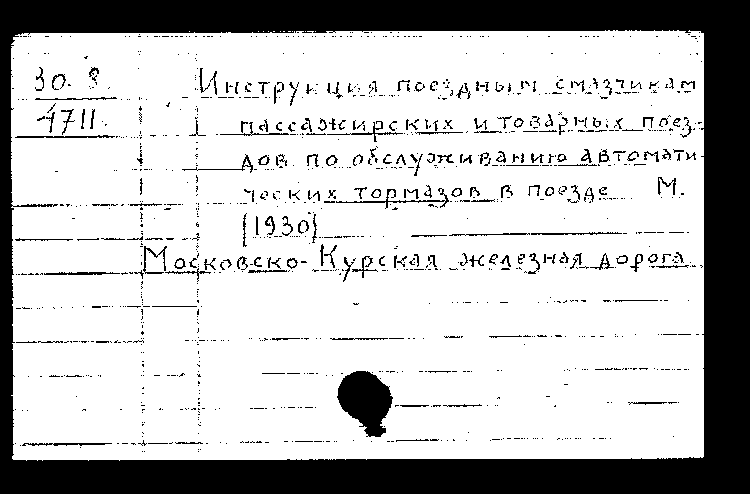 30. 8.
4711.
Инструкция поездным смазчикам
пассажирских и товарных поез-
дов по обслуживанию автомати-
ческих тормазов в поезде М.
(1930)
Московско-Курская железная дорога